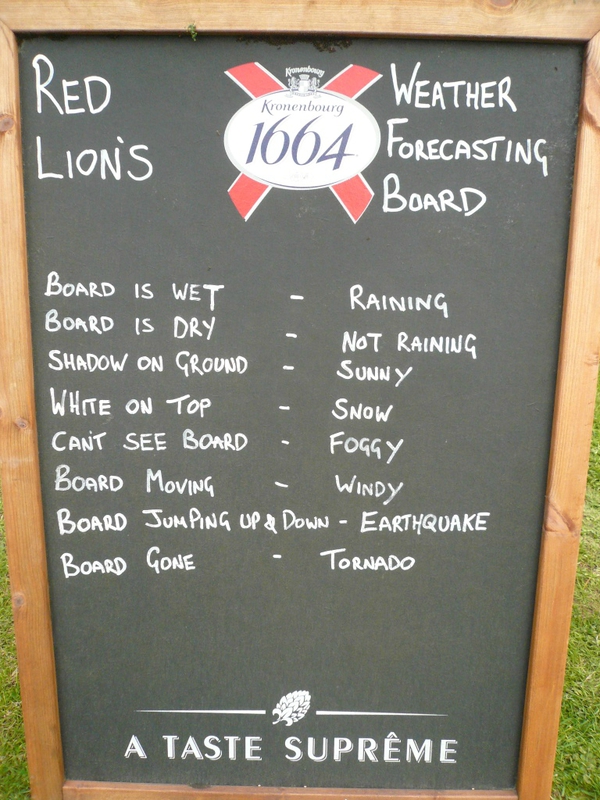 RED
LION'S
Kronenbourg
Kronenbourg
1664
WEATHER
FORECASTING
BOARD
BOARD IS WET - RAINING
BOARD IS DRY - NOT RAINING
SHADOW ON GROUND - SUNNY
WHITE ON TOP - SNOW
CAN'T SEE BOARD - FOGGY
BOARD MOVING - WINDY
BOARD JUMPING UP & DOWN - EARTHQUAKE
BOARD GONE - TORNADO
A TASTE SUPRÊME